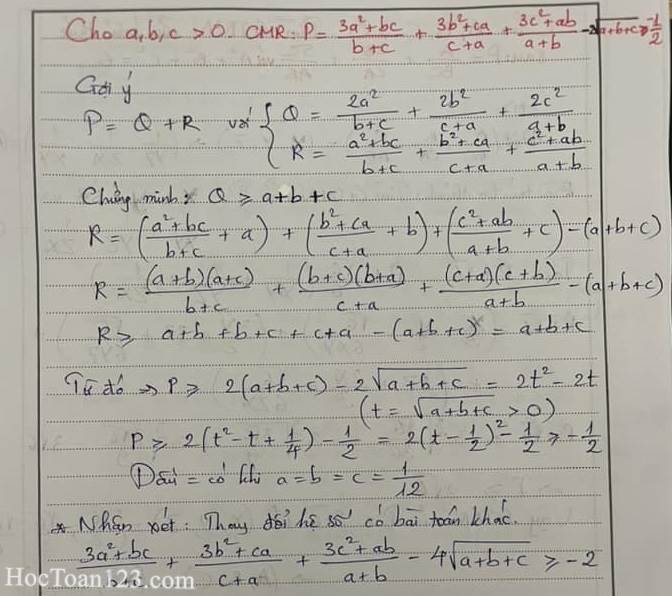 Cho a,b,c > 0. CMR: P = \frac{3a²+bc}{b+c} + \frac{3b²+ca}{c+a} + \frac{3c²+ab}{a+b} - 2\sqrt{a+b+c} ≥ -\frac{1}{2}
Gợi ý
P = Q + R với { Q = \frac{2a²}{b+c} + \frac{2b²}{c+a} + \frac{2c²}{a+b}
R = \frac{a²+bc}{b+c} + \frac{b²+ca}{c+a} + \frac{c²+ab}{a+b}
Chứng minh: Q ≥ a+b+c
R = (\frac{a²+bc}{b+c} + a) + (\frac{b²+ca}{c+a} + b) + (\frac{c²+ab}{a+b} + c) - (a+b+c)
R = \frac{(a+b)(a+c)}{b+c} + \frac{(b+c)(b+a)}{c+a} + \frac{(c+a)(c+b)}{a+b} - (a+b+c)
R ≥ a+b + b+c + c+a - (a+b+c) = a+b+c
Từ đó ⇒ P ≥ 2(a+b+c) - 2\sqrt{a+b+c} = 2t² - 2t
(t = \sqrt{a+b+c} > 0)
P ≥ 2(t² - t + \frac{1}{4}) - \frac{1}{2} = 2(t - \frac{1}{2})² - \frac{1}{2} ≥ -\frac{1}{2}
Dấu = có khi a = b = c = \frac{1}{12}
* Nhận xét: Thay đổi hệ số có bài toán khác.
\frac{3a²+bc}{b+c} + \frac{3b²+ca}{c+a} + \frac{3c²+ab}{a+b} - 4\sqrt{a+b+c} ≥ -2
HocToan123.com